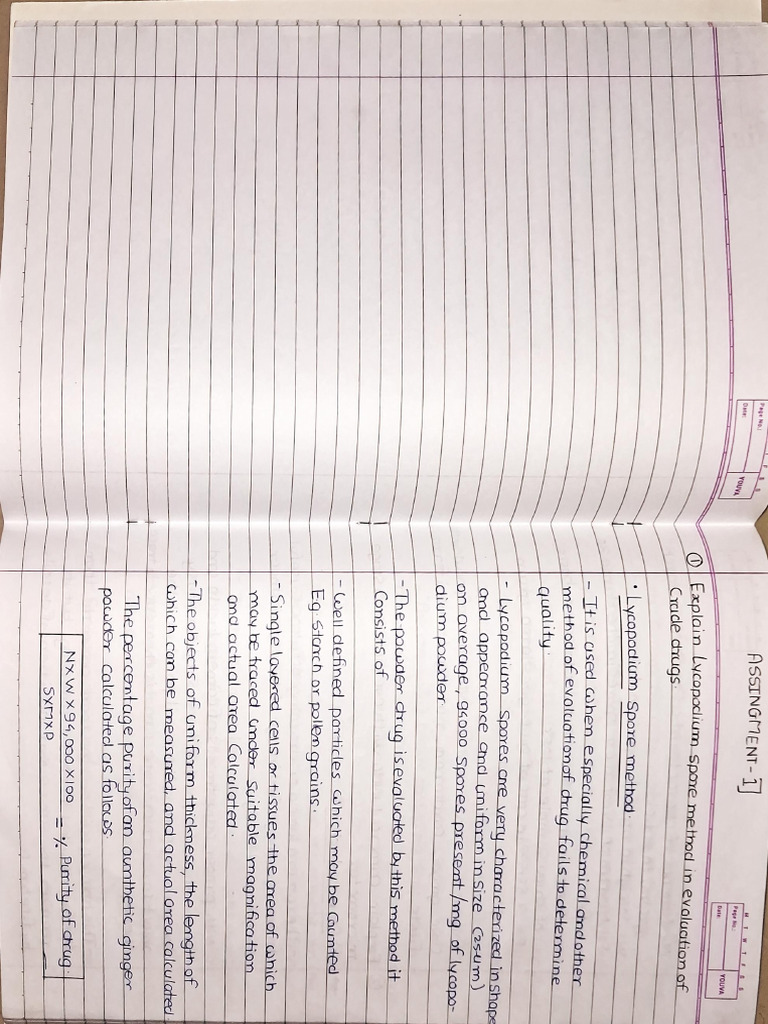 Page No.:
Date:
YOUVA
M T W T F S S
Page No.:
Date:
YOUVA
ASSINGMENT-1]
① Explain Lycopodium spore method in evaluation of
Crude drugs.
• Lycopodium Spore method.
- It is used when especially chemical and other
method of evaluation of drug fails to determine
quality.
- Lycopodium spores are very characterized in shape
and appearance and uniform in size (25um)
on average, 94000 spores present /mg of lycopo-
dium powder.
- The powder drug is evaluated by this method it
Consists of
- Well defined particles which may be Counted
Eg. Starch or pollen grains.
- Single layered cells or tissues the area of which
may be traced under suitable magnification
and actual area calculated.
- The objects of uniform thickness, the length of
which can be measured, and actual area calculated.
The percentage purity of an aunthetic ginger
powder calculated as follows
N×W×94,000×100 = % Purity of drug.
S×M×P